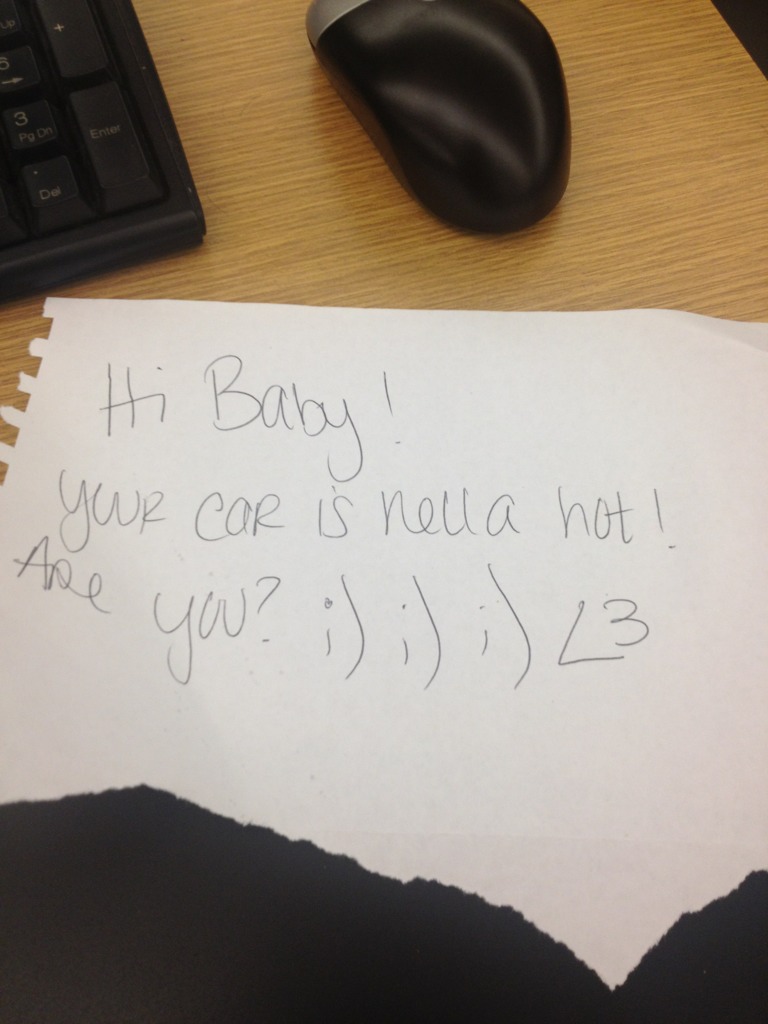 Up
+
6
→
3
Pg Dn
Enter
.
Del
Hi Baby!
your car is hella hot!
Are you? ;) ;) ;) <3